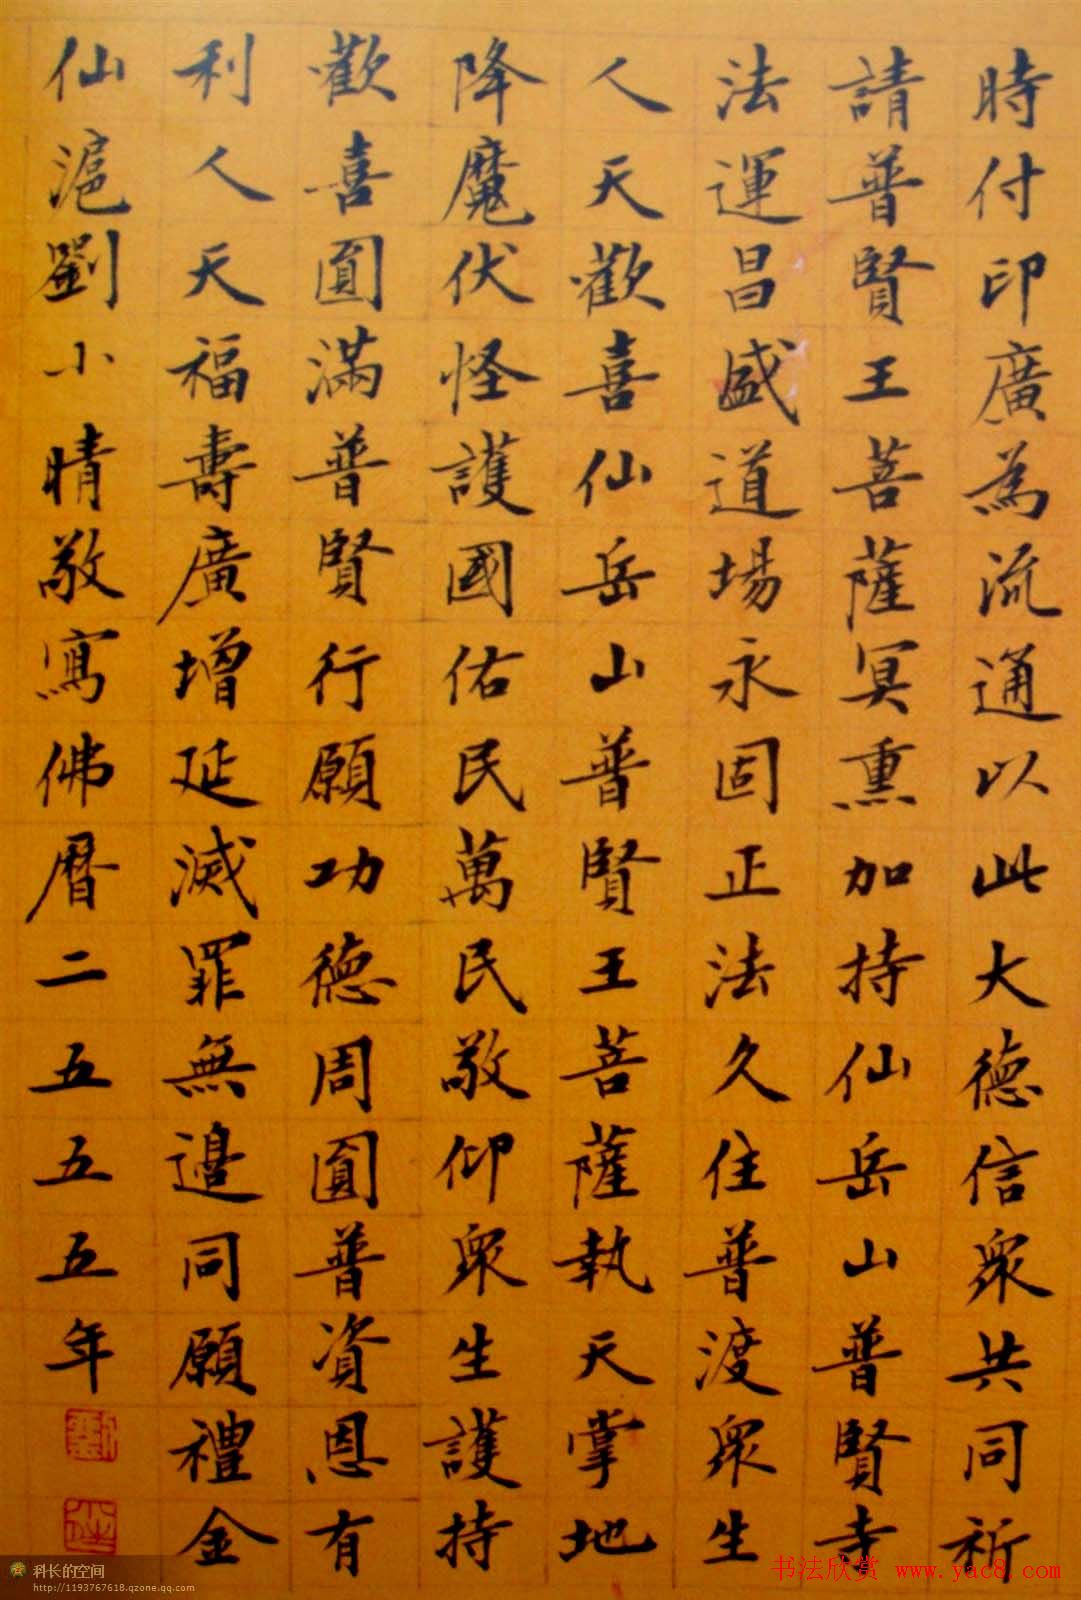 時付印廣為流通以此大德信眾共同祈
請普賢王菩薩冥熏加持仙岳山普賢寺
法運昌盛道場永固正法久住普渡眾生
人天歡喜仙岳山普賢王菩薩執天掌地
降魔伏怪護國佑民萬民敬仰眾生護持
歡喜圓滿普賢行願功德周圓普資恩有
利人天福壽廣增延滅罪無邊同願禮金
仙滬劉小晴敬寫佛曆二五五五年
科长的空间
http://1193767618.qzone.qq.com
书法欣赏 www.yac8.com